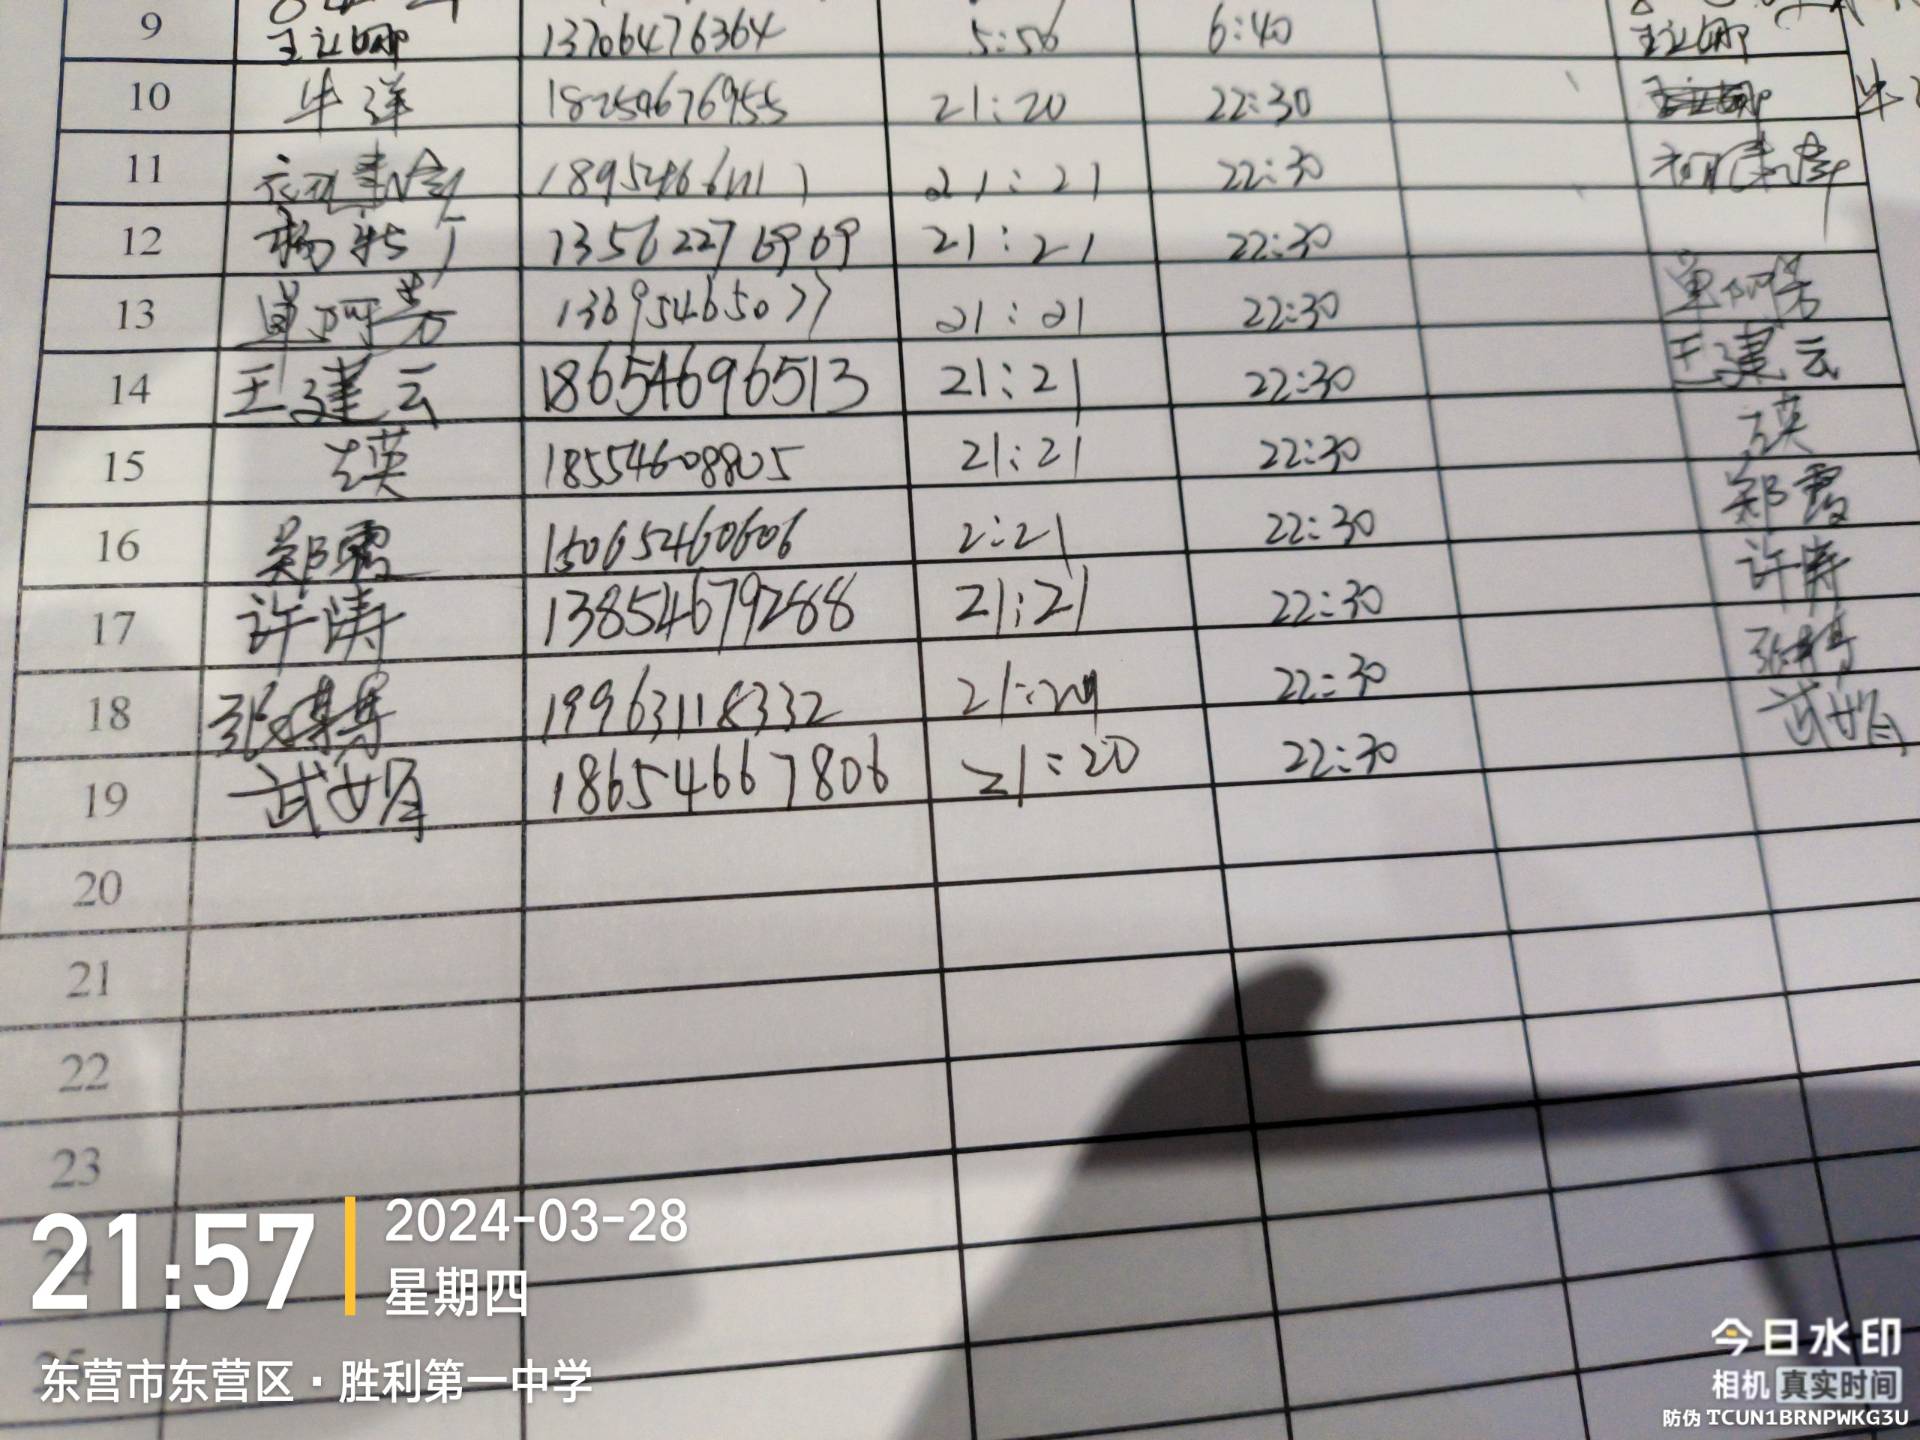 9 王立娜 13706476364 5:56 6:40 王立娜
10 牛洋 18254676955 21:20 22:30 牛
11 21:21 22:30
12 杨 13562276969 21:21 22:30
13 单阿芳 13695465077 21:21 22:30 单阿芳
14 王建云 18654696513 21:21 22:30 王建云
15 英 18554608805 21:21 22:30 英
16 郑霞 15065460606 2:21 22:30 郑霞
17 许涛 13854679288 21:21 22:30 许涛
18 张博 19963118332 22:30 张博
19 武娟 18654667806 21:20 22:30 武娟
20
21
22
23
24
25
21:57
2024-03-28
星期四
东营市东营区·胜利第一中学
今日水印
相机 真实时间
防伪 TCUN1BRNPWKG3U